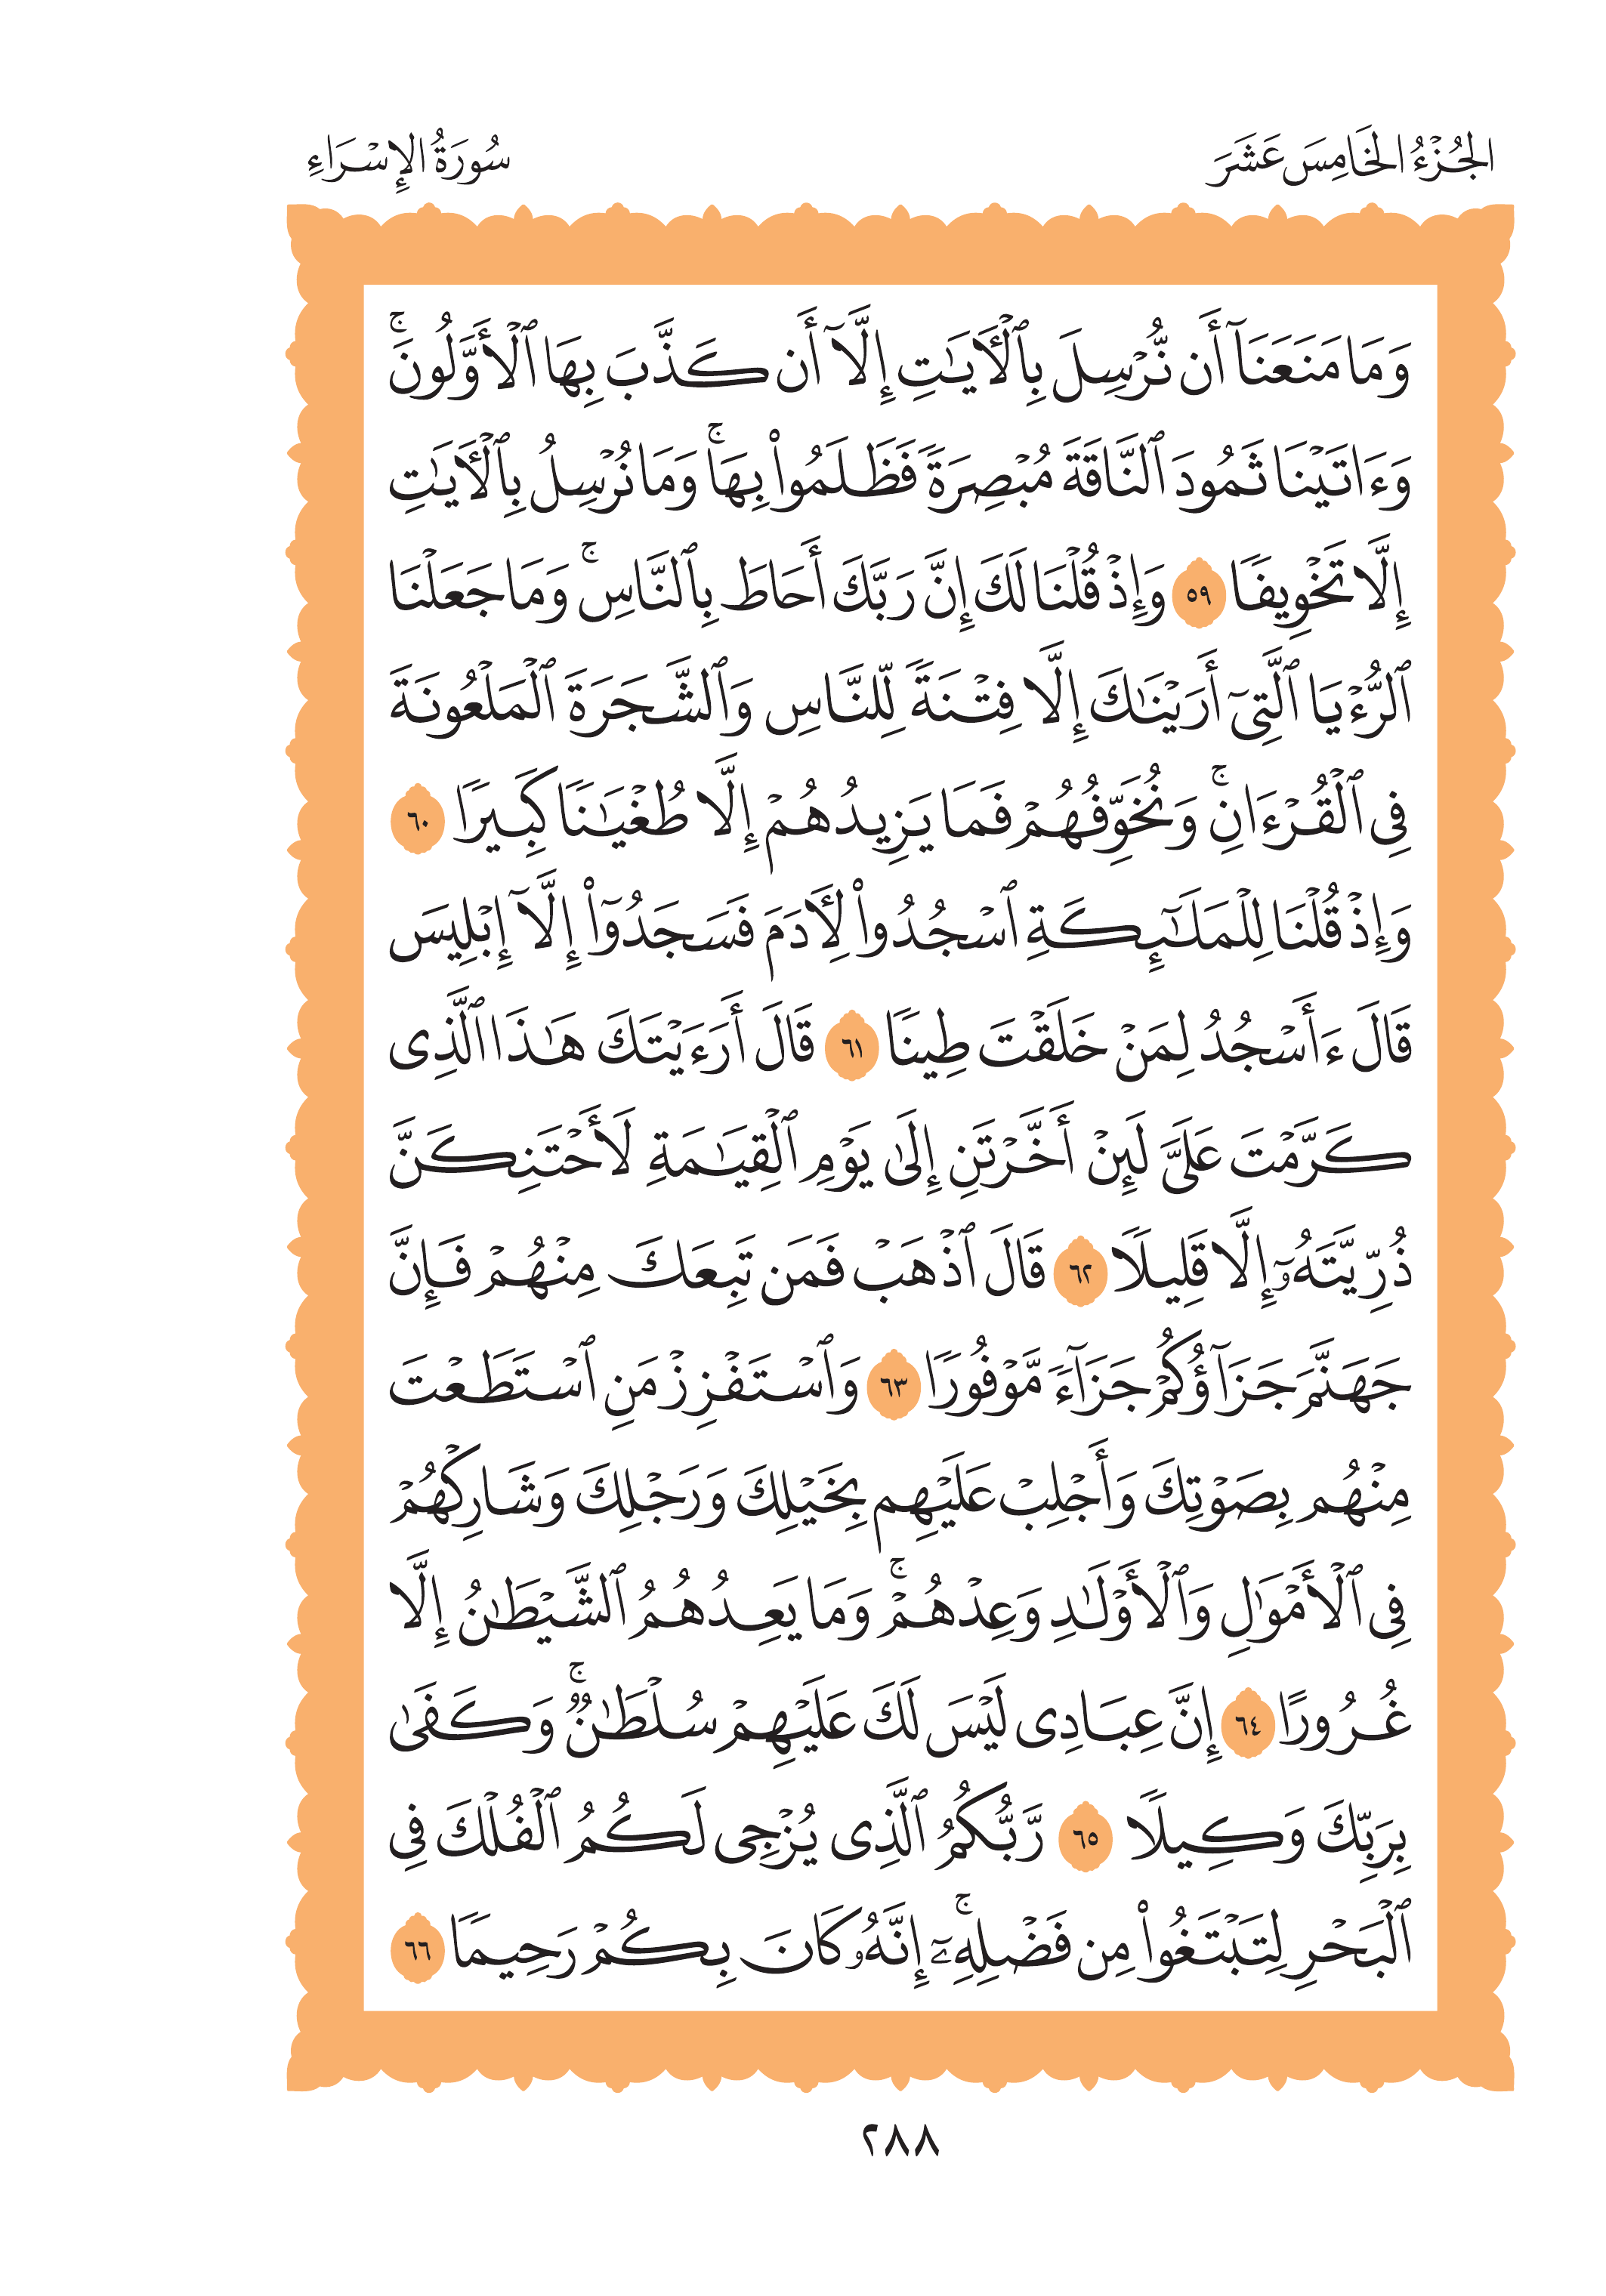 الجُزْءُ الخَامِسَ عَشَرَ
سُورَةُ الإِسْرَاءِ
وَمَا مَنَعَنَآ أَن نُّرْسِلَ بِٱلْأَيَـٰتِ إِلَّآ أَن كَذَّبَ بِهَا ٱلْأَوَّلُونَۚ
وَءَاتَيْنَا ثَمُودَ ٱلنَّاقَةَ مُبْصِرَةً فَظَلَمُوا۟ بِهَاۚ وَمَا نُرْسِلُ بِٱلْأَيَـٰتِ
إِلَّا تَخْوِيفًا ٥٩ وَإِذْ قُلْنَا لَكَ إِنَّ رَبَّكَ أَحَاطَ بِٱلنَّاسِۚ وَمَا جَعَلْنَا
ٱلرُّءْيَا ٱلَّتِىٓ أَرَيْنَـٰكَ إِلَّا فِتْنَةً لِّلنَّاسِ وَٱلشَّجَرَةَ ٱلْمَلْعُونَةَ
فِى ٱلْقُرْءَانِۚ وَنُخَوِّفُهُمْ فَمَا يَزِيدُهُمْ إِلَّا طُغْيَـٰنًا كَبِيرًا ٦٠
وَإِذْ قُلْنَا لِلْمَلَـٰٓئِكَةِ ٱسْجُدُوا۟ لِأَدَمَ فَسَجَدُوٓا۟ إِلَّآ إِبْلِيسَ
قَالَ ءَأَسْجُدُ لِمَنْ خَلَقْتَ طِينًا ٦١ قَالَ أَرَءَيْتَكَ هَـٰذَا ٱلَّذِى
كَرَّمْتَ عَلَىَّ لَئِنْ أَخَّرْتَنِ إِلَىٰ يَوْمِ ٱلْقِيَـٰمَةِ لَأَحْتَنِكَنَّ
ذُرِّيَّتَهُۥٓ إِلَّا قَلِيلًا ٦٢ قَالَ ٱذْهَبْ فَمَن تَبِعَكَ مِنْهُمْ فَإِنَّ
جَهَنَّمَ جَزَآؤُكُمْ جَزَآءً مَّوْفُورًا ٦٣ وَٱسْتَفْزِزْ مَنِ ٱسْتَطَعْتَ
مِنْهُم بِصَوْتِكَ وَأَجْلِبْ عَلَيْهِم بِخَيْلِكَ وَرَجْلِكَ وَشَارِكْهُمْ
فِى ٱلْأَمْوَٰلِ وَٱلْأَوْلَـٰدِ وَعِدْهُمْۚ وَمَا يَعِدُهُمُ ٱلشَّيْطَـٰنُ إِلَّا
غُرُورًا ٦٤ إِنَّ عِبَادِى لَيْسَ لَكَ عَلَيْهِمْ سُلْطَـٰنٌۚ وَكَفَىٰ
بِرَبِّكَ وَكِيلًا ٦٥ رَّبُّكُمُ ٱلَّذِى يُزْجِى لَكُمُ ٱلْفُلْكَ فِى
ٱلْبَحْرِ لِتَبْتَغُوا۟ مِن فَضْلِهِۦٓۚ إِنَّهُۥ كَانَ بِكُمْ رَحِيمًا ٦٦
٢٨٨